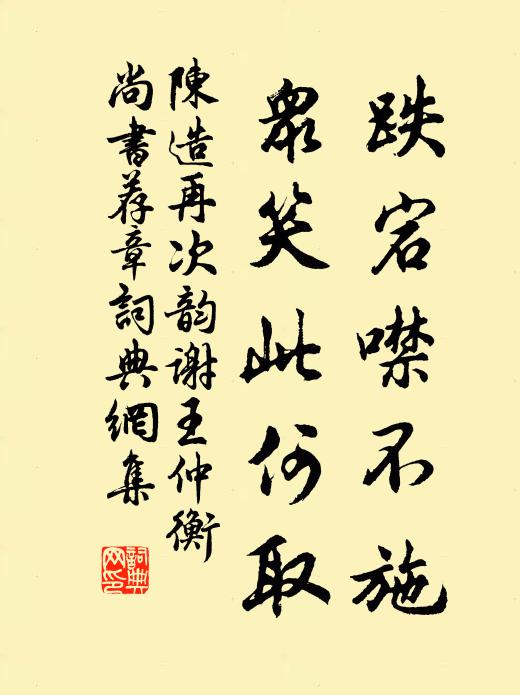 跌宕噤不施
眾笑此何取
陳造再次韵謝王仲衡
尚書荐章詞典網集
詞典网印